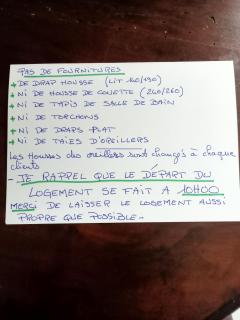 PAS DE FOURNITURES
+ DE DRAP HOUSSE (LIT 140/190)
+ NI DE HOUSSE DE COUETTE (240/260)
+ NI DE TAPIS DE SALLE DE BAIN
+ NI DE TORCHONS
+ NI DE DRAPS PLAT
+ NI DE TAIES D'OREILLERS
Les Housses des oreillers sont changés à chaque
clients
- JE RAPPEL QUE LE DÉPART DU
LOGEMENT SE FAIT A 10H00
MERCI DE LAISSER LE LOGEMENT AUSSI
PROPRE QUE POSSIBLE -